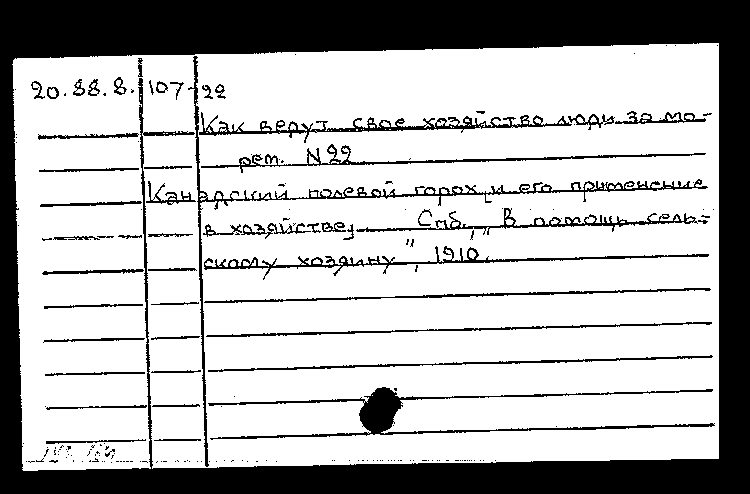 20.88.8. 107-22
Как ведут свое хозяйство люди за мо-
рем. N 22
Канадский полевой горох [и его применение
в хозяйстве] Спб., „В помощь сель-
скому хозяину", 1910.